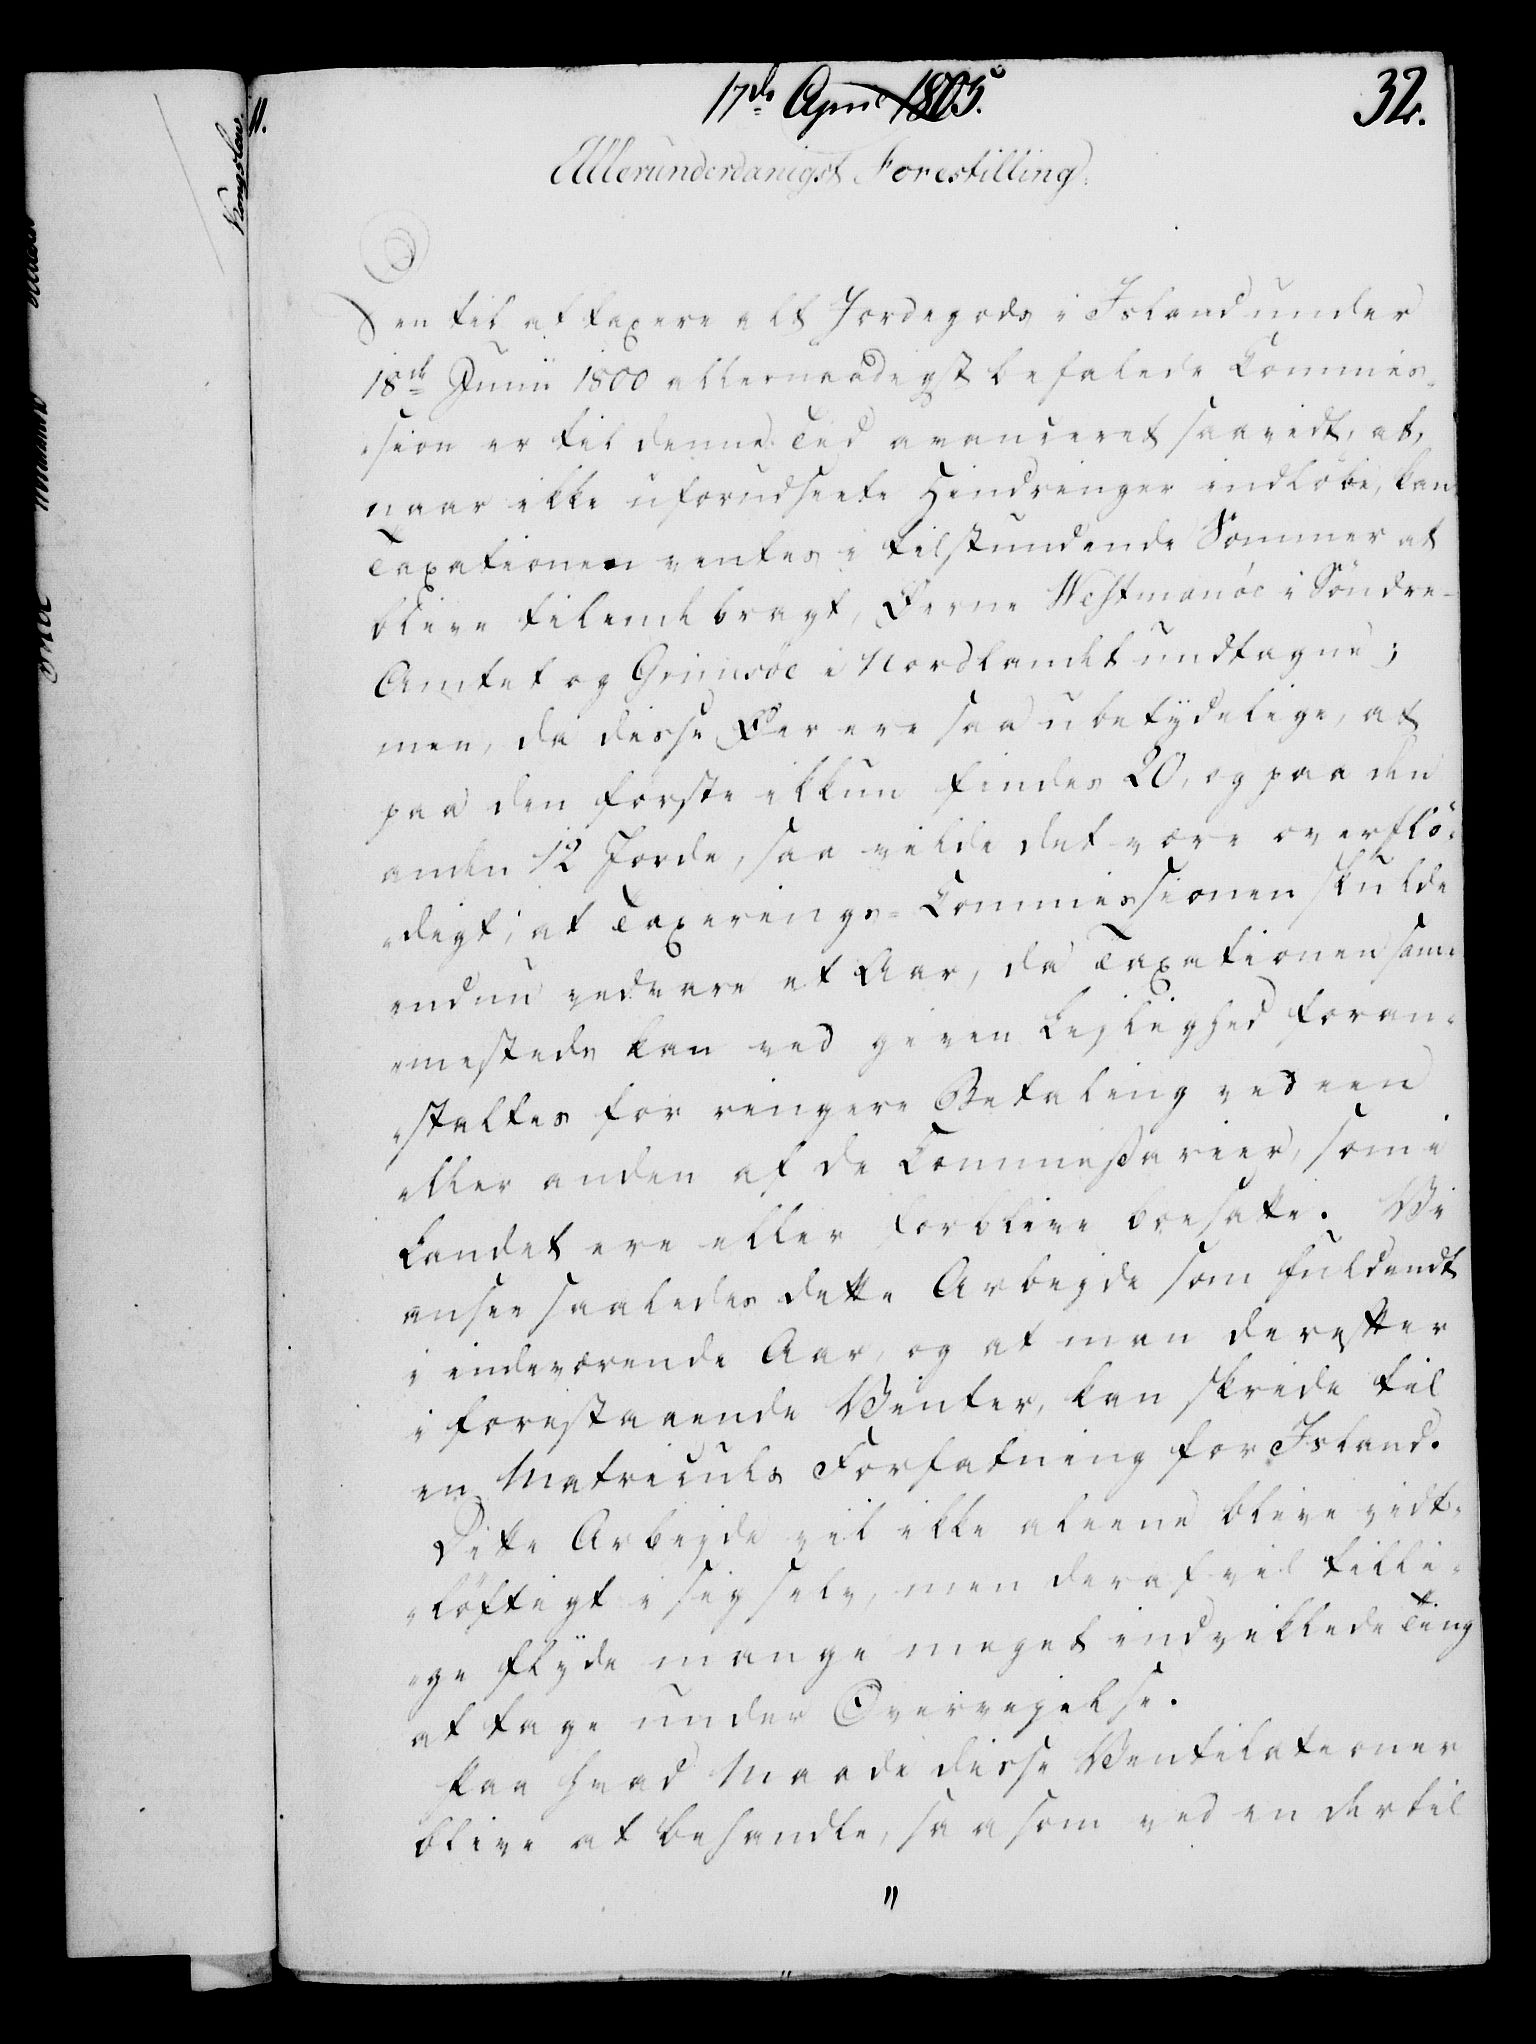 17de April 1805.
32.
Allerunderdanigst Forestilling.
Den til at taxere alt Jordegods i Island under
18de Junii 1800 allernaadigst befalede Commis-
sion er til denne Tid avanceret saavidt, at,
naar ikke uforudseete Hindringer indløbe, kan
Taxationen ventes i tilstundende Sommer at
blive tilendebragt, Øerne Westmanøe i Söndre-
Amtet og Grimsøe i Nordlandet undtagne;
men, da disse Øer ere saa ubetydelige, at
paa den förste ikkun findes 20, og paa den
anden 12 Jorde, saa vilde det være overflö-
digt, at Taxerings-Commissionen skulde
endnu vedvare et Aar, da Taxationen sam-
mesteds kan ved given Lejlighed foran-
staltes for ringere Betaling ved een
eller anden af de Commissarier, som i
Landet ere eller forblive boesatte. Vi
ansee saaledes dette Arbejde som fuldendt
i indeværende Aar, og at man derefter
i forestaaende Vinter, kan skride til
en Matriculs Forfatning for Island.
Dette Arbejde vil ikke aleene blive vidt-
löftigt i sig selv, men deraf vil tilli-
ge flyde mange meget indviklede Ting
at tage under Overvejelse.
Paa hvad Maade disse Ventilationer
blive at behandle, saasom ved en dertil
"